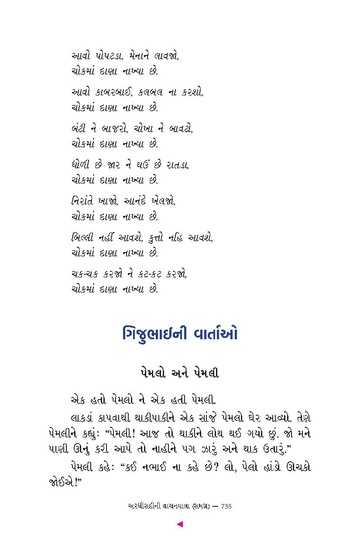 આવો પોપટડા, મેનાને લાવજો,
ચોકમાં દાણા નાખ્યા છે.
આવો કાબરબાઈ, કલબલ ના કરશો,
ચોકમાં દાણા નાખ્યા છે.
બંટી ને બાજરો, ચોખા ને બાવટો,
ચોકમાં દાણા નાખ્યા છે.
ધોળી છે જાર ને ઘઉં છે રાતડા,
ચોકમાં દાણા નાખ્યા છે.
નિરાંતે ખાજો, આનંદે ખેલજો,
ચોકમાં દાણા નાખ્યા છે.
બિલ્લી નહીં આવશે, કુત્તો નહિ આવશે,
ચોકમાં દાણા નાખ્યા છે.
ચક-ચક કરજો ને કટ-કટ કરજો,
ચોકમાં દાણા નાખ્યા છે.
ગિજુભાઈની વાર્તાઓ
પેમલો અને પેમલી
એક હતો પેમલો ને એક હતી પેમલી.
લાકડાં કાપવાથી થાકીપાકીને એક સાંજે પેમલો ઘેર આવ્યો. તેણે
પેમલીને કહ્યું: "પેમલી! આજ તો થાકીને લોથ થઈ ગયો છું. જો મને
પાણી ઊનું કરી આપે તો નાહીને પગ ઝારું અને થાક ઉતારું."
પેમલી કહે: "કઈ નભાઈ ના કહે છે? લો, પેલો હાંડો ઊચકો
જોઈએ!"
અરધીસદીની વાચનયાત્રા (સમગ્ર) — 735